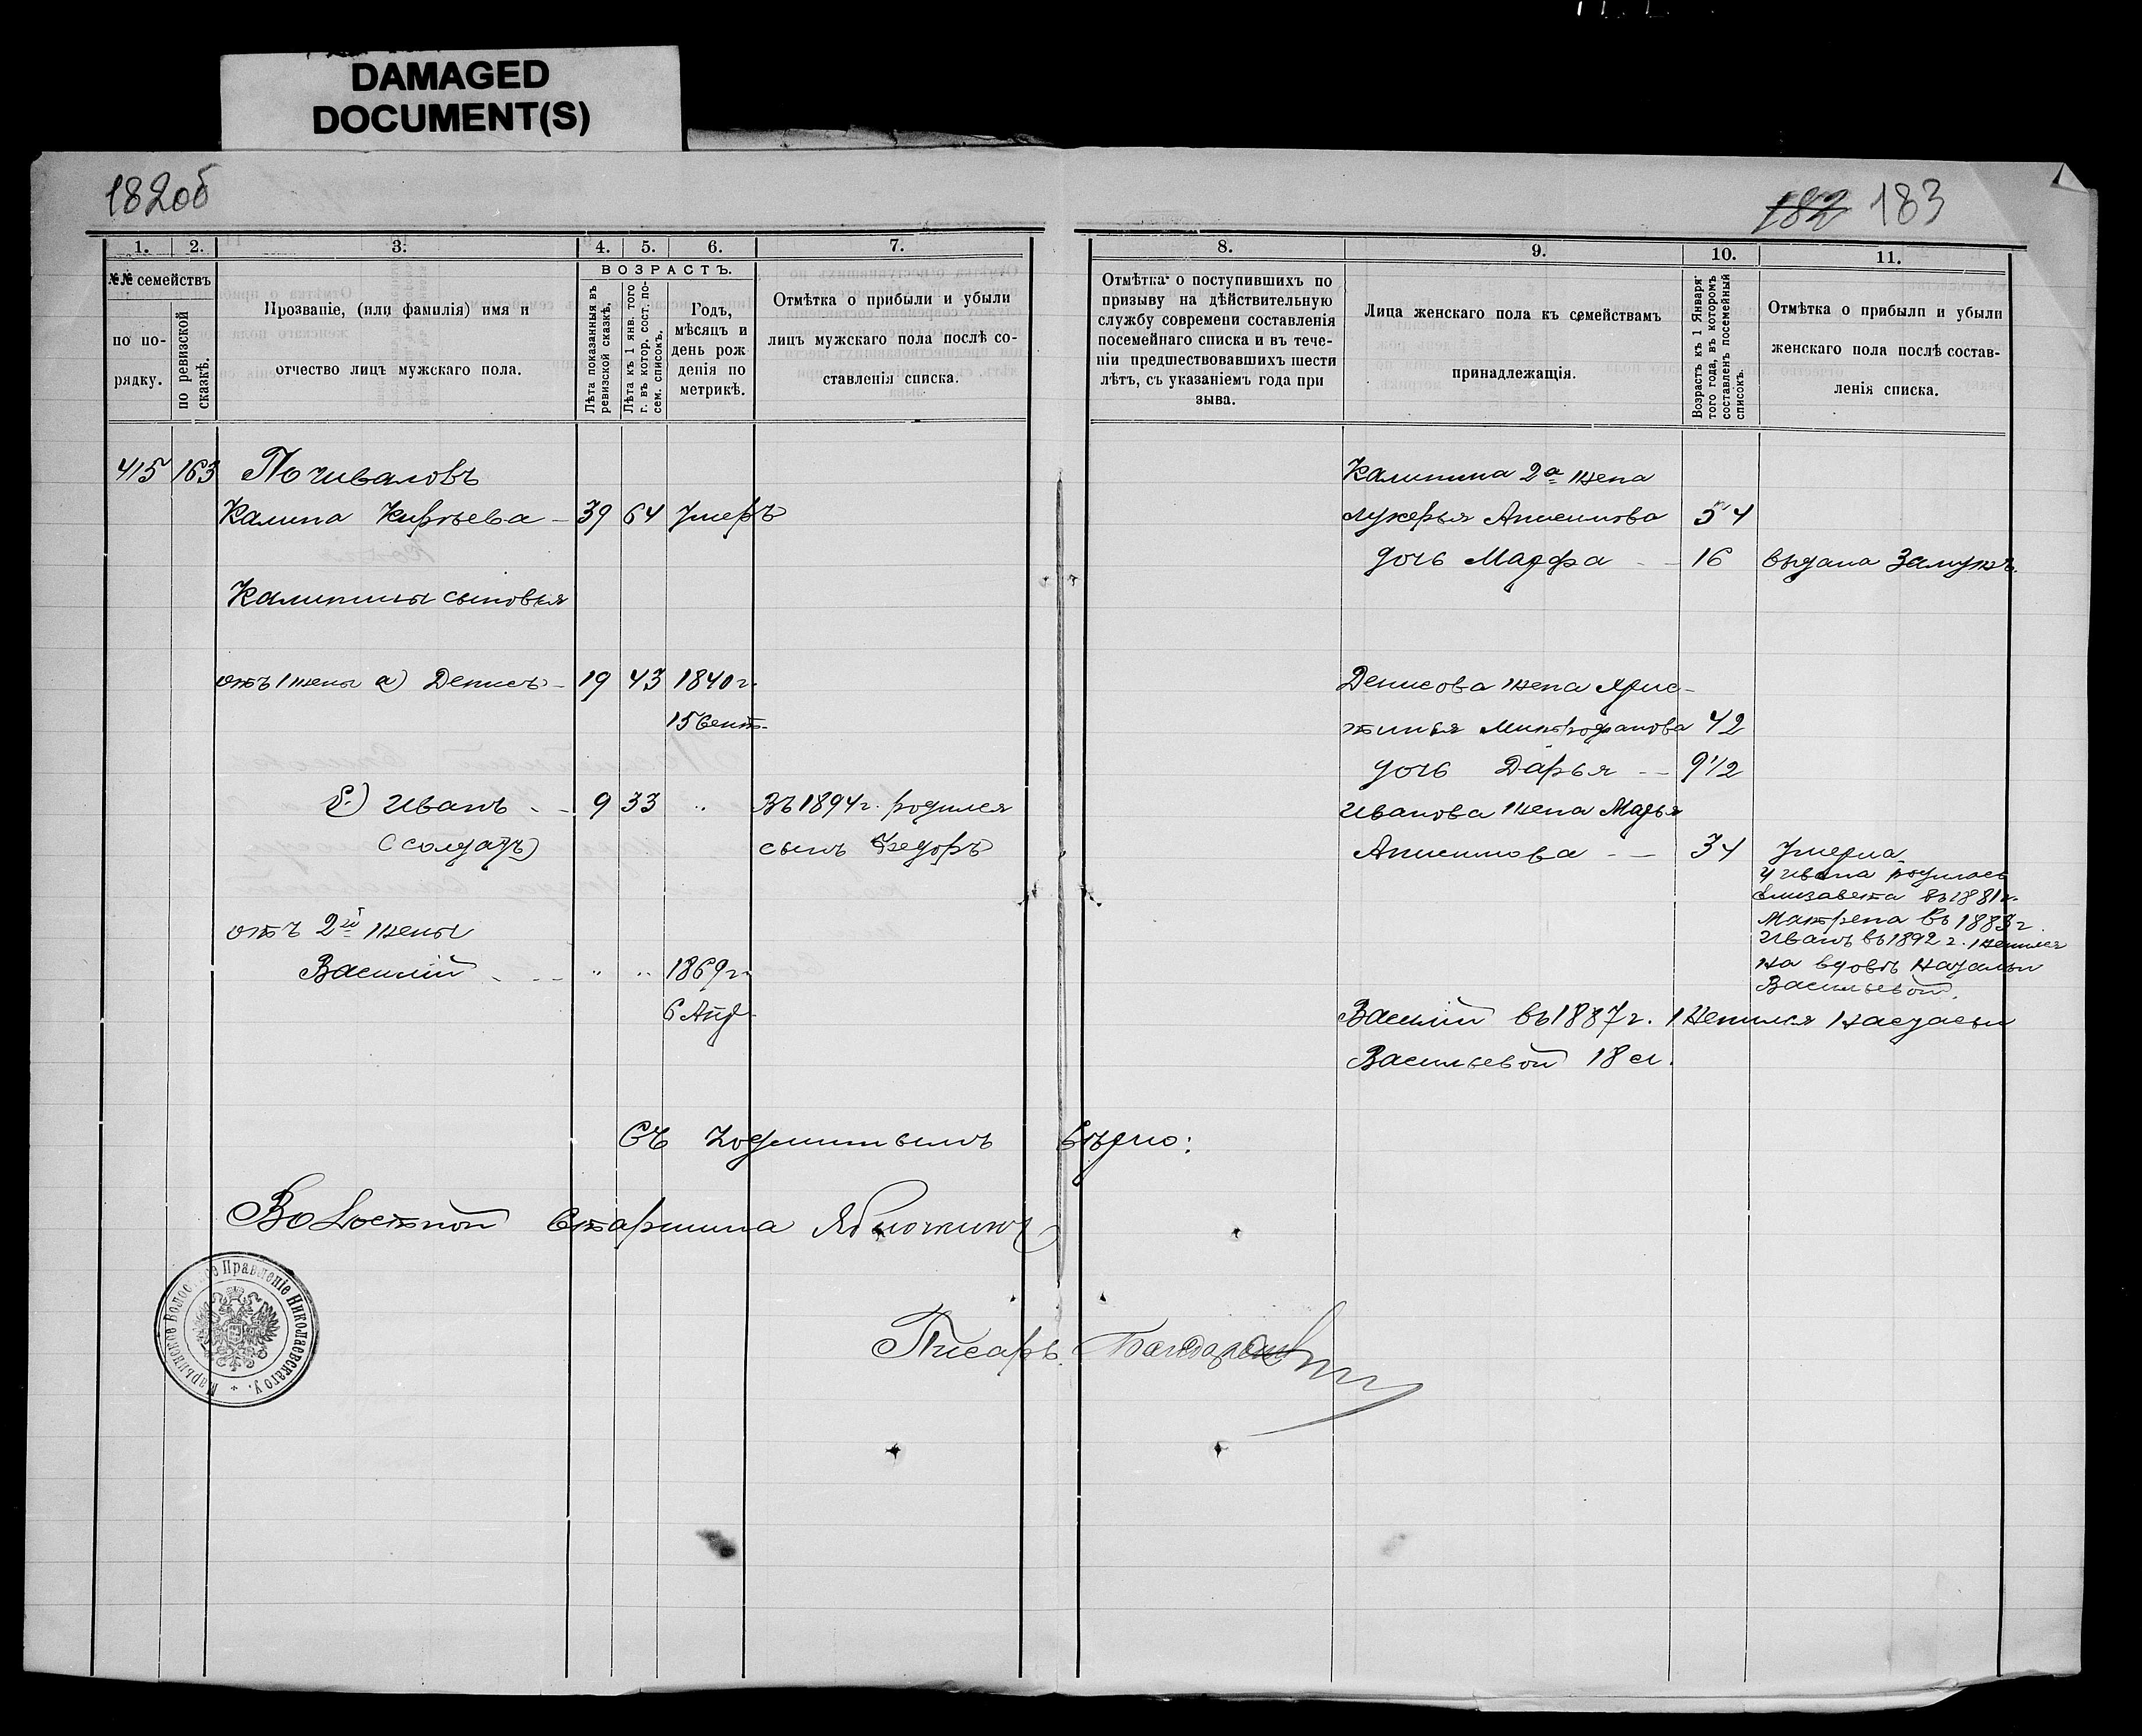 DAMAGED
DOCUMENT(S)
182об
182 183
1. 2. 3. 4. 5. 6. 7.
8. 9. 10. 11.
№№ семействъ
по по-
рядку.
по ревизской
сказкѣ.
Прозваніе, (или фамилія) имя и
отчество лицъ мужскаго пола.
ВОЗРАСТЪ.
Лѣта показанныя въ
ревизской сказкѣ.
Лѣта къ 1 янв. того
г. въ котор. сост. по-
сем. списокъ.
Годъ,
мѣсяцъ и
день рож
денія по
метрикѣ.
Отмѣтка о прибыли и убыли
лицъ мужскаго пола послѣ со-
ставленія списка.
Отмѣтка о поступившихъ по
призыву на дѣйствительную
службу современи составленія
посемейнаго списка и въ тече-
ніи предшествовавшихъ шести
лѣтъ, съ указаніемъ года при
зыва.
Лица женскаго пола къ семействамъ
принадлежащія.
Возрастъ къ 1 Января
того года, въ которомъ
составленъ посемейный
списокъ.
Отмѣтка о прибыли и убыли
женскаго пола послѣ состав-
ленія списка.
415 163 Почиваловъ
Калина Кирѣева - 39 64 Умеръ
Калинины сыновья
отъ 1 жены а) Денисъ - 19 43 1840 г.
15 Сент.
б) Иванъ - - 9 33 " Въ 1894 г. родился
(солдатъ) сынъ Федоръ
отъ 2й жены
Василій - - - " " 1869 г.
6 Апр.
Калинина 2а жена
Лукерья Анисимова 54
дочь Марфа - - 16 выдана замужъ.
Денисова жена Хрис-
тинья Митрофанова 42
дочь Дарья - - 9 1/2
Иванова жена Марья
Анисимова - - 34 Умерла
У Ивана родилась
Елизавета въ 1881 г.
Матрена въ 1883 г.
Иванъ въ 1892 г. женился
на вдовѣ Натальи
Васильевой.
Василій въ 1887 г. женился Настасьи
Васильевой 18 л.
Съ подлиннымъ вѣрно:
Волостной Старшина Яблочкинъ
Марьинское Волостное Правленіе Николаевскаго у.
Писарь